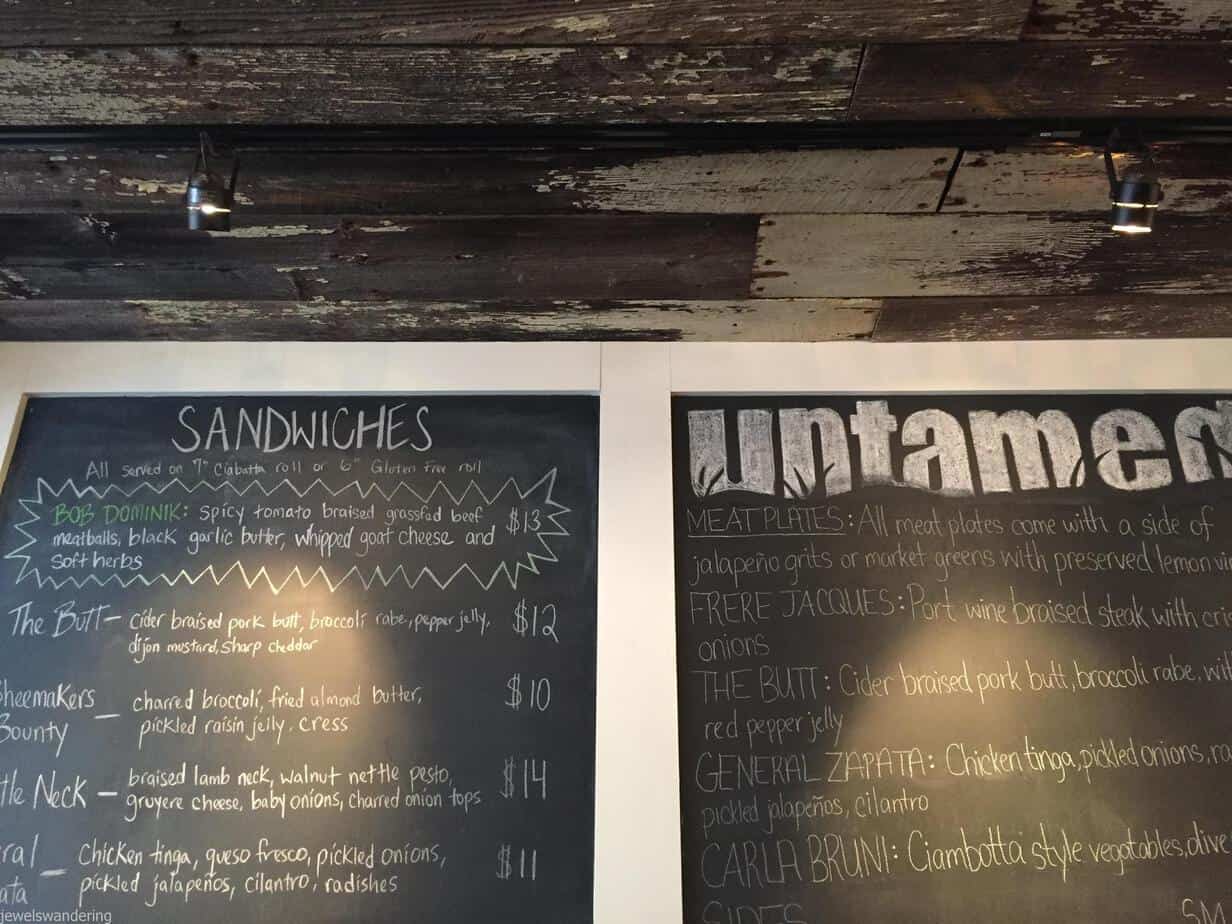 SANDWICHES
All served on 7" Ciabatta roll or 6" Gluten Free roll
BOB DOMINIK: Spicy tomato braised grassfed beef $13
meatballs, black garlic butter, whipped goat cheese and
soft herbs
The Butt- cider braised pork butt, broccoli rabe, pepper jelly, $12
dijon mustard, sharp cheddar
heemakers charred broccoli, fried almond butter, $10
Bounty - pickled raisin jelly, cress
tle Neck - braised lamb neck, walnut nettle pesto, $14
gruyere cheese, baby onions, charred onion tops
ral - chicken tinga, queso fresco, pickled onions, $11
ata pickled jalapeños, cilantro, radishes
jewelswandering
untamed
MEAT PLATES: All meat plates come with a side of
jalapeño grits or market greens with preserved lemon vi
FRERE JACQUES: Port wine braised steak with cr
onions
THE BUTT: Cider braised pork butt, broccoli rabe, wil
red pepper jelly
GENERAL ZAPATA: Chicken tinga, pickled onions, ra
pickled jalapeños, cilantro
CARLA BRUNI: Ciambotta style vegatables, olive
SIDES SM